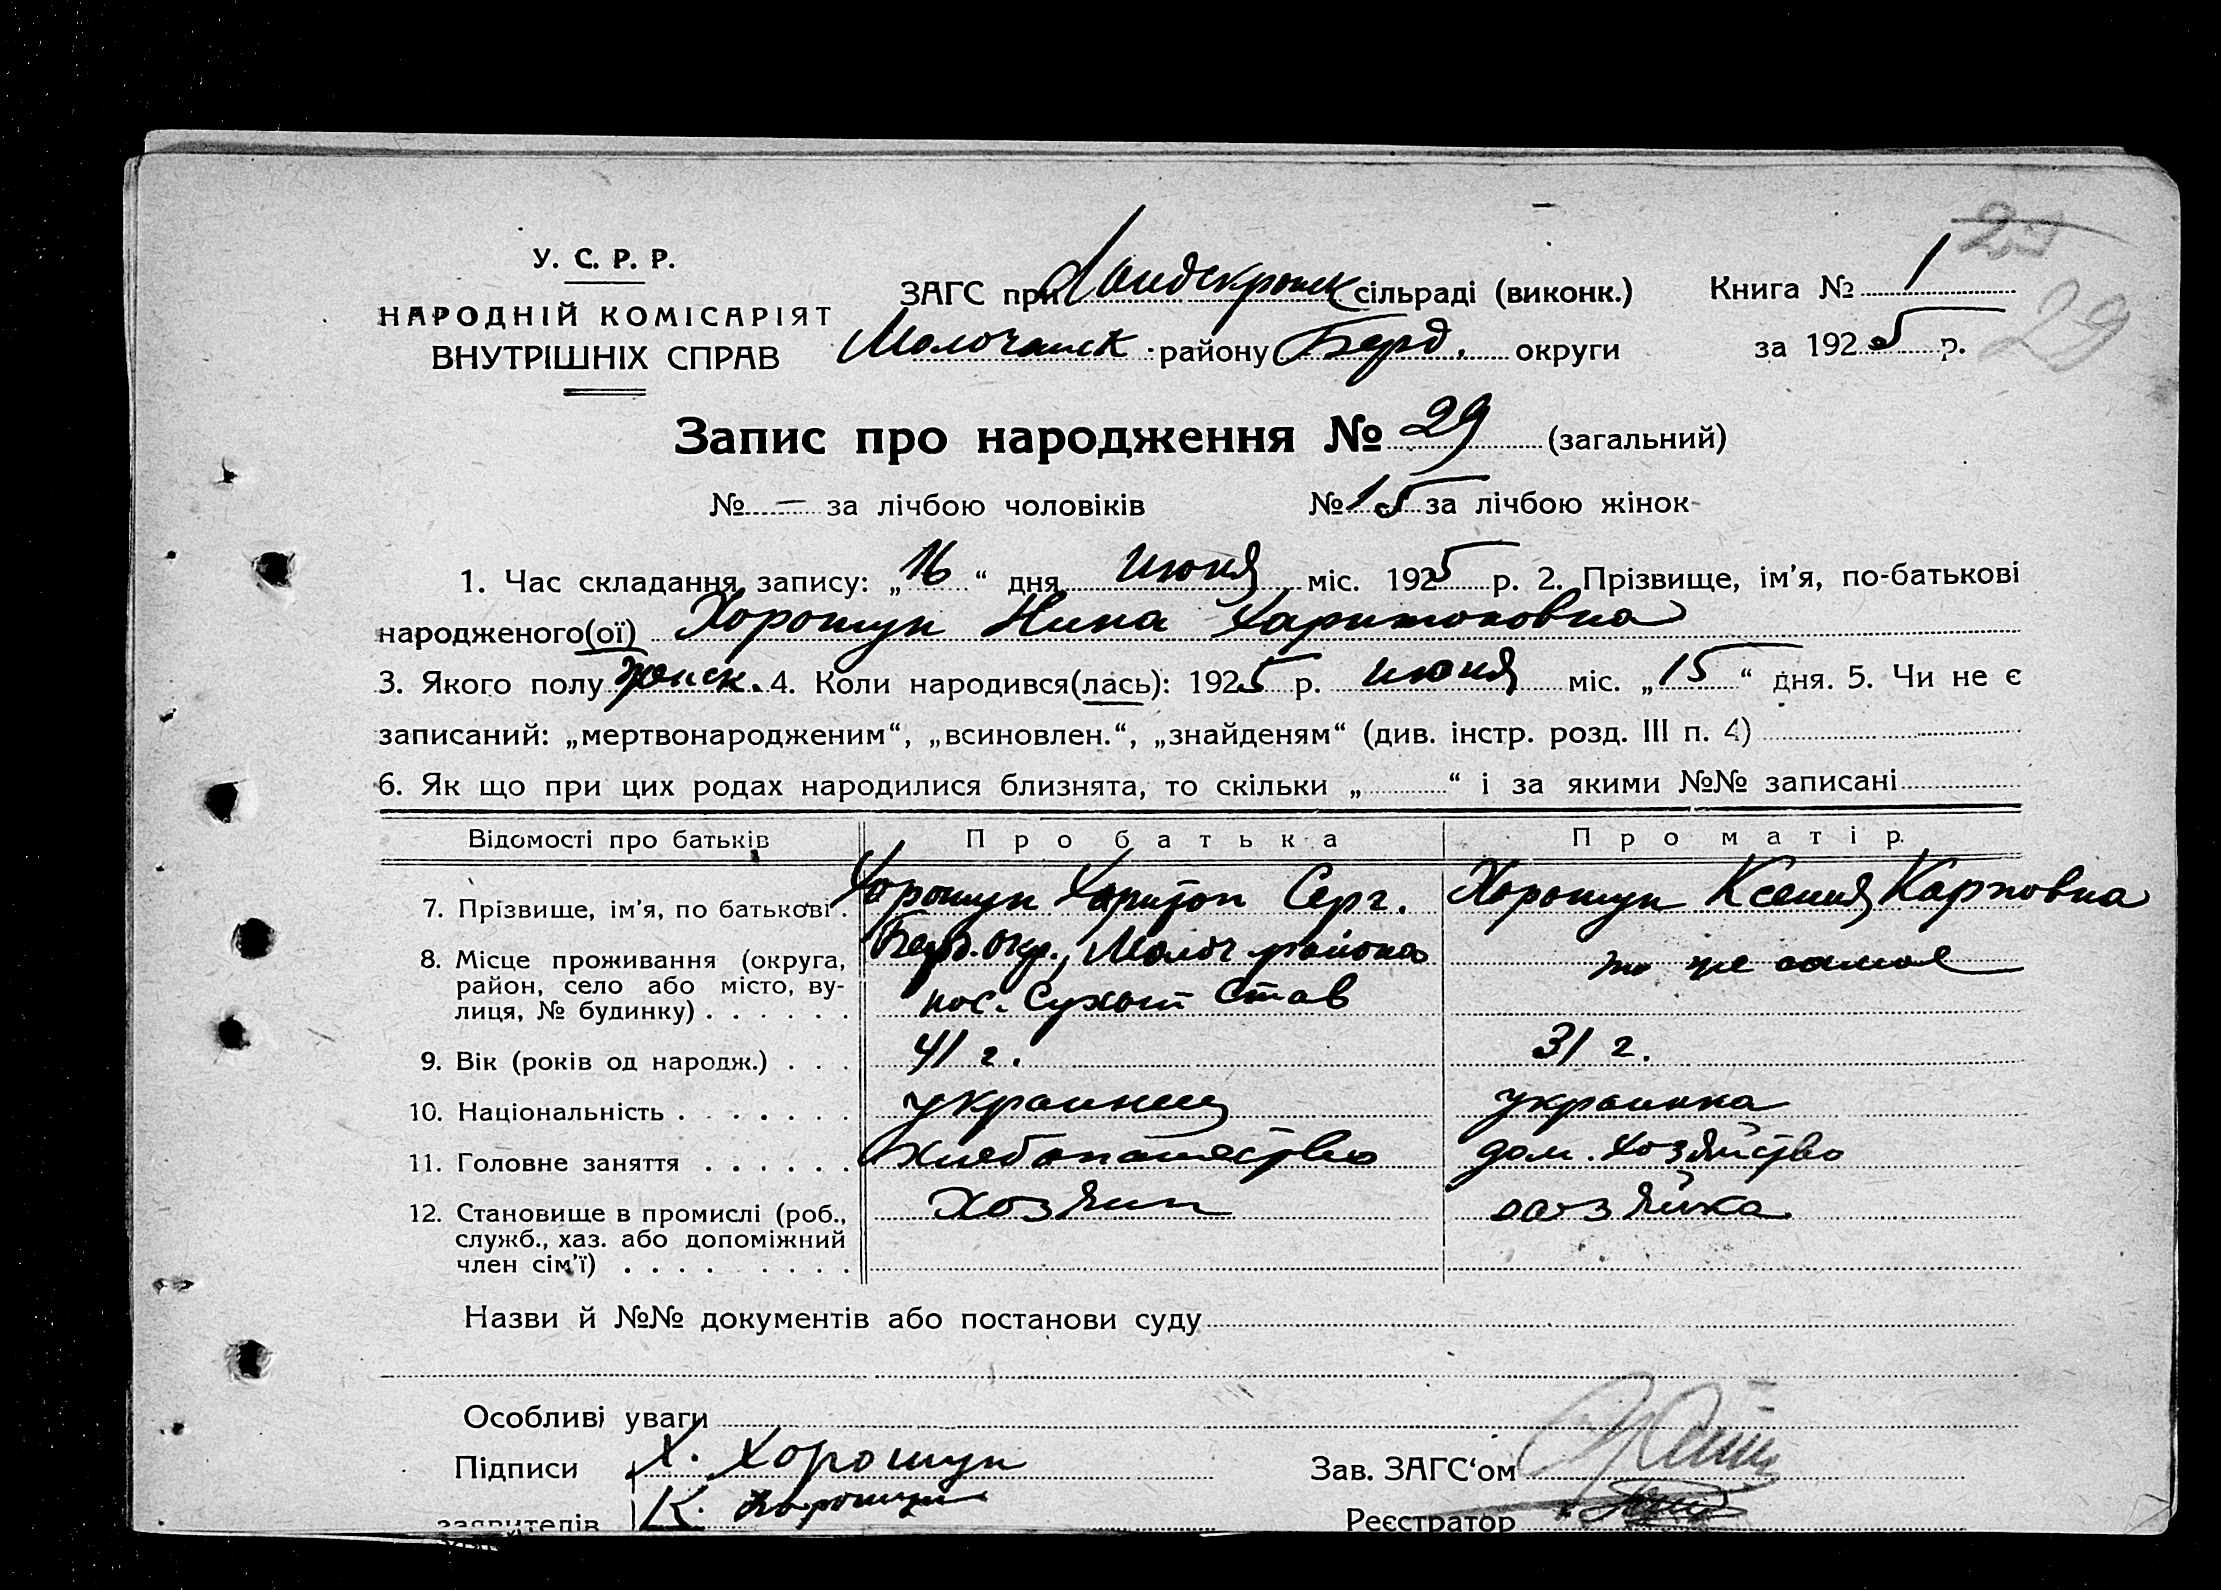 У. С. Р. Р.
НАРОДНІЙ КОМІСАРІЯТ
ВНУТРІШНІХ СПРАВ
ЗАГС при Ландскронск сільраді (виконк.)
Молочанск району Берд. округи
Книга № 1
за 1925 р.
29
Запис про народження № 29 (загальний)
№ — за лічбою чоловіків № 15 за лічбою жінок
1. Час складання запису: „16“ дня июня міс. 1925 р. 2. Прізвище, ім’я, по-батькові
народженого(ої) Хорошун Нина Харитоновна
3. Якого полу женск. 4. Коли народився(лась): 1925 р. июня міс. „15“ дня. 5. Чи не є
записаний: „мертвонародженим“, „всиновлен.“, „знайденям“ (див. інстр. розд. III п. 4)
6. Як що при цих родах народилися близнята, то скільки „ “ і за якими №№ записані
Відомості про батьків Про батька Про матір
7. Прізвище, ім’я, по батькові . Хорошун Харитон Серг. Хорошун Ксения Карповна
8. Місце проживання (округа, район, село або місто, вулиця, № будинку) . . . . . . Берд. окр., Молоч района то же самое
пос. Сухой Став
9. Вік (років од народж.) . . . 41 г. 31 г.
10. Національність . . . . . . . украинец украинка
11. Головне заняття . . . . . . хлебопашество дом. хозяйство
12. Становище в промислі (роб., служб., хаз. або допоміжний член сім’ї) . . . . . . . . хозяин хозяйка
Назви й №№ документів або постанови суду
Особливі уваги
Підписи Х. Хорошун Зав. ЗАГС‘ом
заявителів К. Хорошун Реєстратор